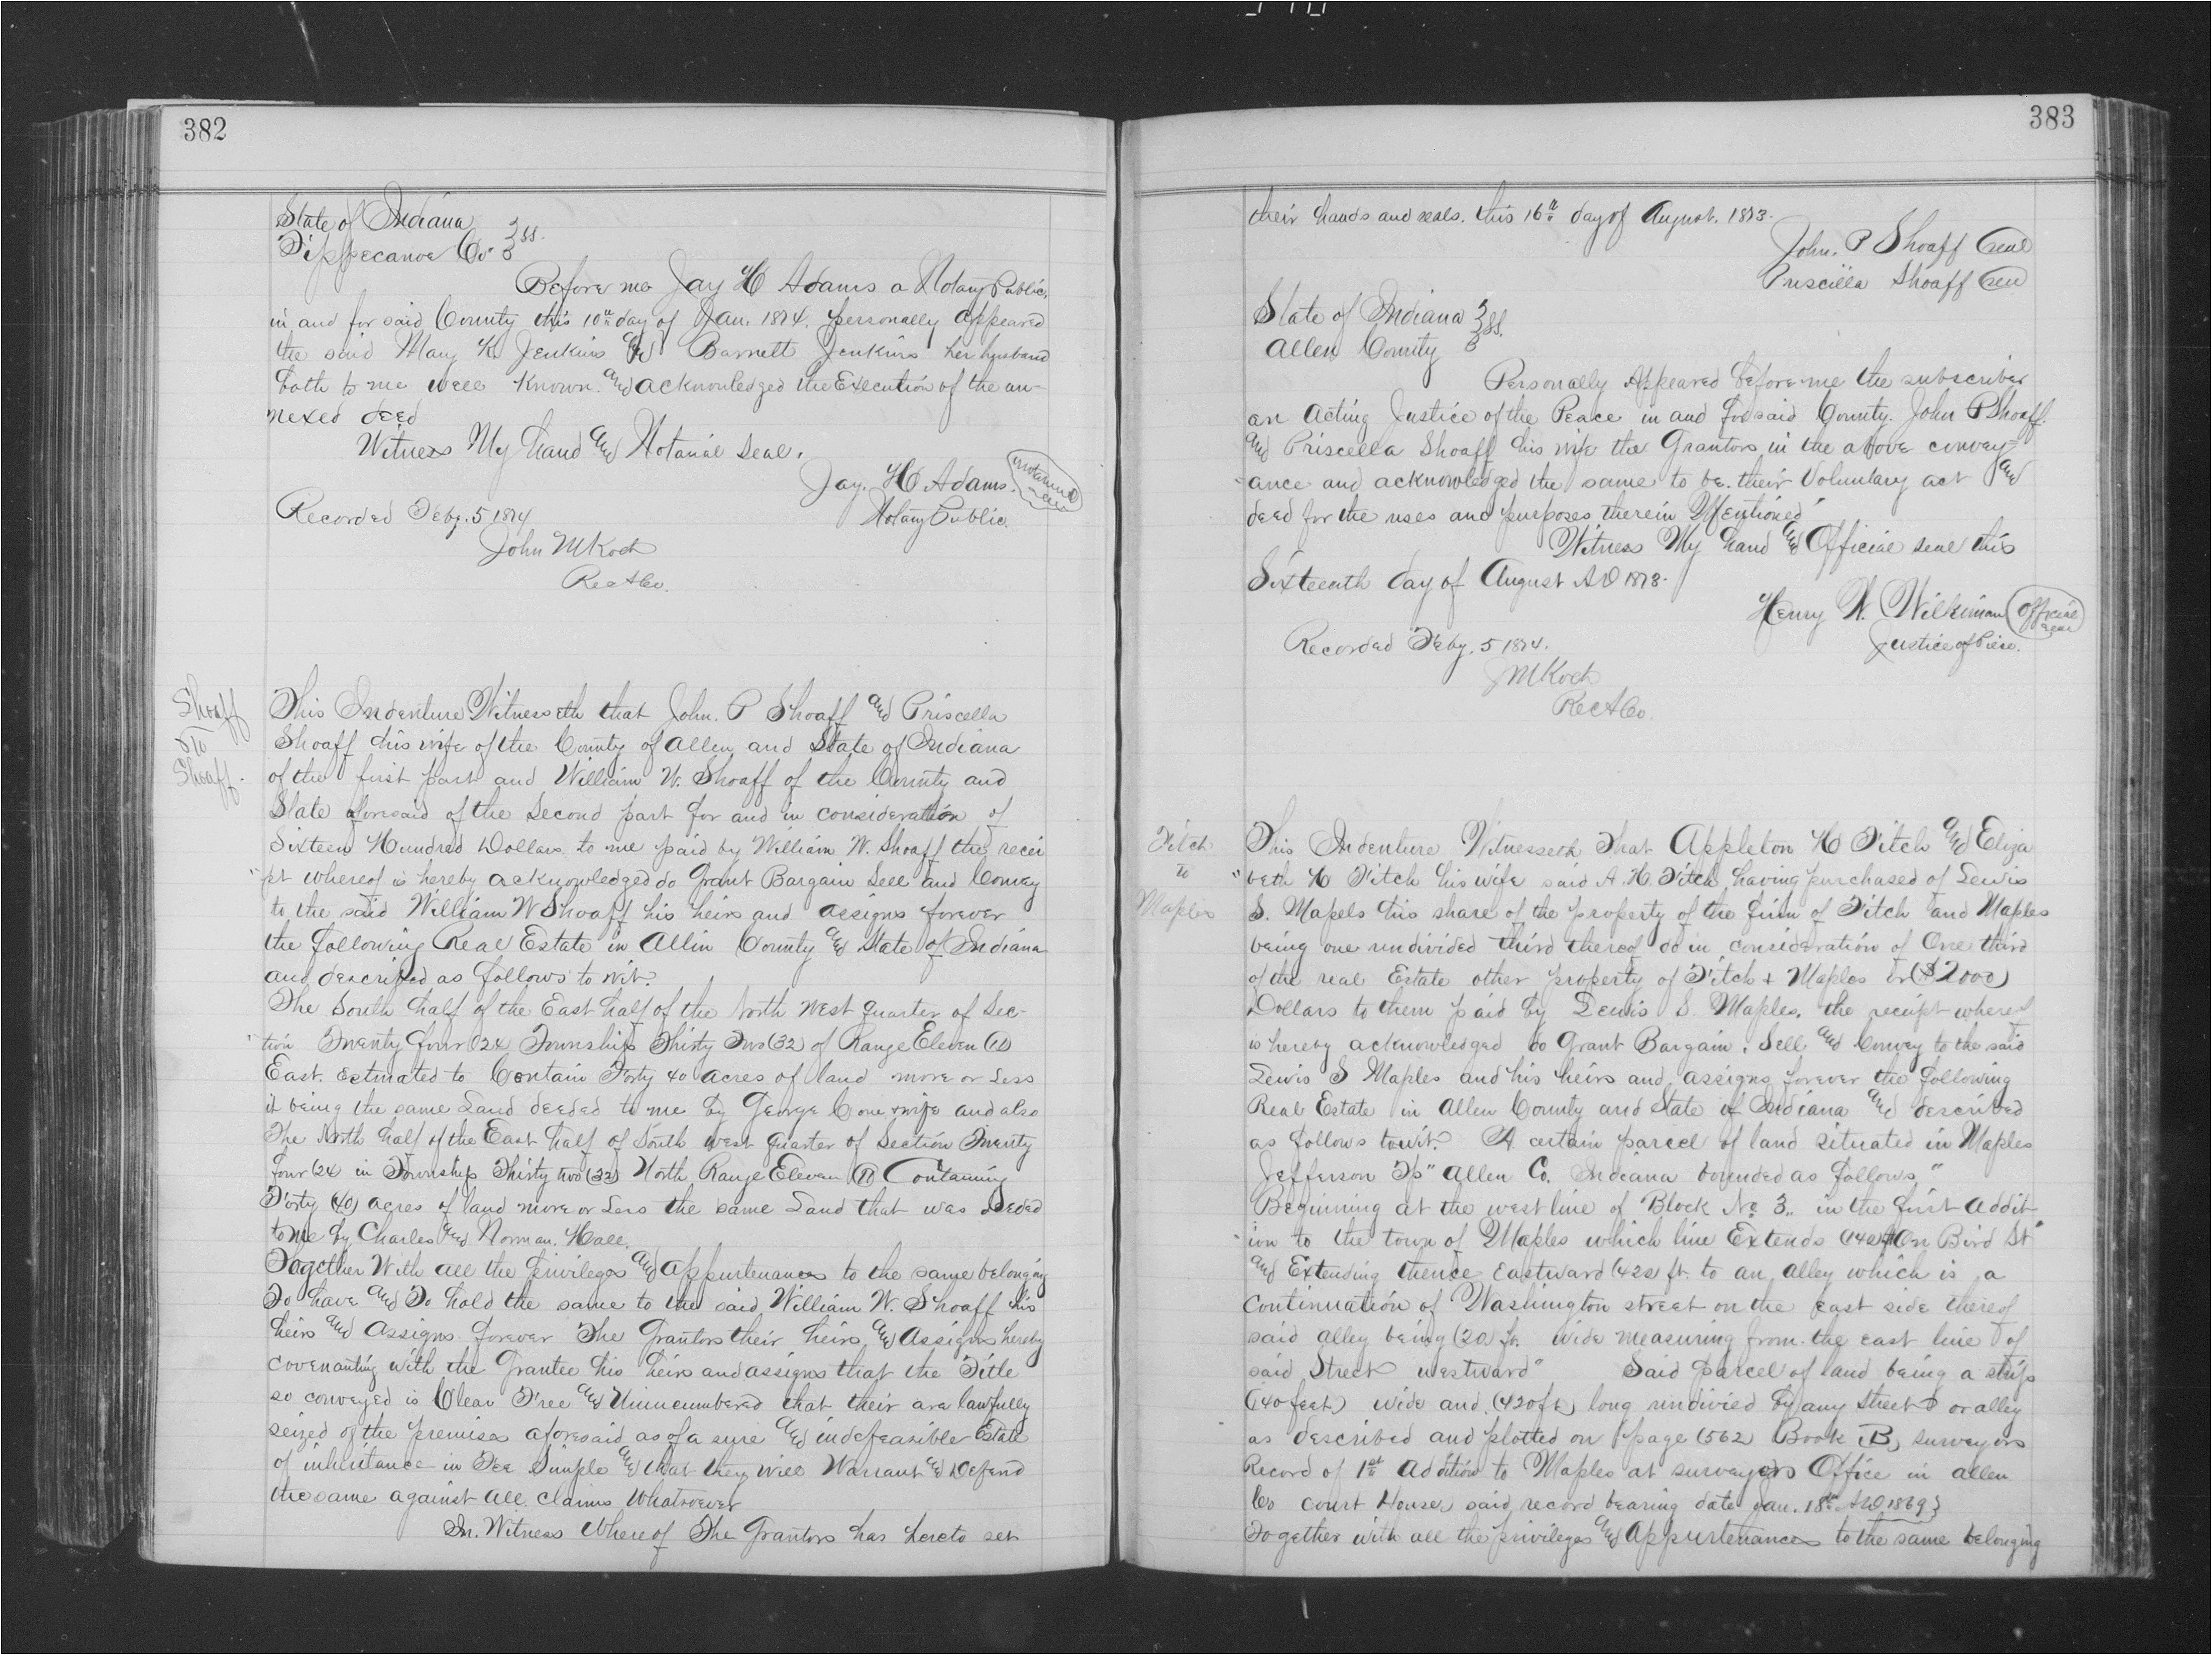 382
State of Indiana } ss.
Tippecanoe Co. }
Before me Jay H Adams a Notary Public,
in and for said County this 10th day of Jan. 1874, personally appeared
the said Mary K. Jenkins and Barnett Jenkins her husband
both to me well known. and acknowledged the Execution of the an-
nexed deed
Witness My hand and Notarial Seal.
Jay. H Adams. Notarial Seal
Notary Public.
Recorded Feby. 5 1874
John M Koch
Rec A Co.
Shoaff
To
Shoaff.
This Indenture Witnesseth that John. P Shoaff and Priscella
Shoaff his wife of the County of Allen and State of Indiana
of the first part and William W. Shoaff of the County and
State aforesaid of the Second part for and in consideration of
Sixteen Hundred Dollars to me paid by William W. Shoaff the recei
"pt whereof is hereby acknowledged do Grant Bargain Sell and Convey
to the said William W Shoaff his heirs and assigns forever
the following Real Estate in Allin County and State of Indiana
and described as follows to wit.
The South half of the East half of the North West quarter of Sec-
"tion Twenty four (24 Township Thirty Two (32) of Range Eleven (11)
East. Estmated to Contain Forty 40 acres of land more or Less
it being the same Land deeded to me by George Cone & wife and also
The North half of the East half of South west quarter of Section Twenty
four (24 in Township Thirty two (32) North Range Eleven (11) Containing
Forty (40) acres of land more or Less the same Land that was deeded
to me by Charles and Norman. Hall.
Together With all the privileges and appurtenances to the same belonging
To have and To hold the same to the said William W. Shoaff his
heirs and Assigns forever The Grantors their heirs and Assigns hereby
covenanting with the Grantee his heirs and assigns that the Title
so conveyed is Clear Free and Unincumbered that their are lawfully
seized of the premises aforesaid as of a sure and indefeasible Estate
of inheritance in Fee Simple and that they will Warrant and Defend
the same against all claims Whatsoever
In. Witness Whereof The Grantors has hereto set
383
their hands and seals. this 16th day of August. 1873.
John. P Shoaff Seal
Priscilla Shoaff Seal
State of Indiana } ss.
Allen County }
Personally Appeared before me the subscriber
an Acting Justice of the Peace in and for said County. John P Shoaff.
and Priscella Shoaff his wife the Grantors in the above convey-
"ance and acknowledged the same to be. their Voluntary act and
deed for the uses and purposes therein Mentioned
Witness My hand and Official seal this
Sixteenth day of August AD 1873.
Henry W. Official Seal
Justice of Piece.
Recorded Feby. 5 1874.
J M Koch
Rec A Co.
Fitch
to
Maples
This Indenture Witnesseth That Appleton H Fitch and Eliza
"beth H Fitch his wife said A. H. Fitch having purchased of Lewis
S. Mapels his share of the property of the firm of Fitch and Maples
being one undivided third thereof do in consideration of One third
of the real Estate other property of Fitch & Maples or ($2000)
Dollars to them paid by Lewis S. Maples. the receipt whereof
is hereby acknowledged do Grant Bargain. Sell and Convey to the said
Lewis S Maples and his heirs and assigns forever the following
Real Estate in Allen County and State of Indiana and described
as follows towit. A certain parcel of land situated in Maples
Jefferson Tp" Allen Co. Indiana bounded as follows"
Beginning at the west line of Block No 3,, in the first Addit
"ion to the town of Maples which line Extends (140 ft On Bird St"
and Extending thence Eastward (420 ft. to an alley which is a
Continuation of Washington street on the east side thereof
said alley being (20 ft. wide measuring from the east line of
said Street westward" Said parcel of land being a strip
(140 feet) wide and (420 ft) long undivied by any street or alley
as described and plotted on page (562) Book (B) surveyors
Record of 1st Addition to Maples at surveyors Office in Allen
Co Court House, said record bearing date Jan. 18th AD 1869}
Together with all the privileges and Appurtenances to the same belonging